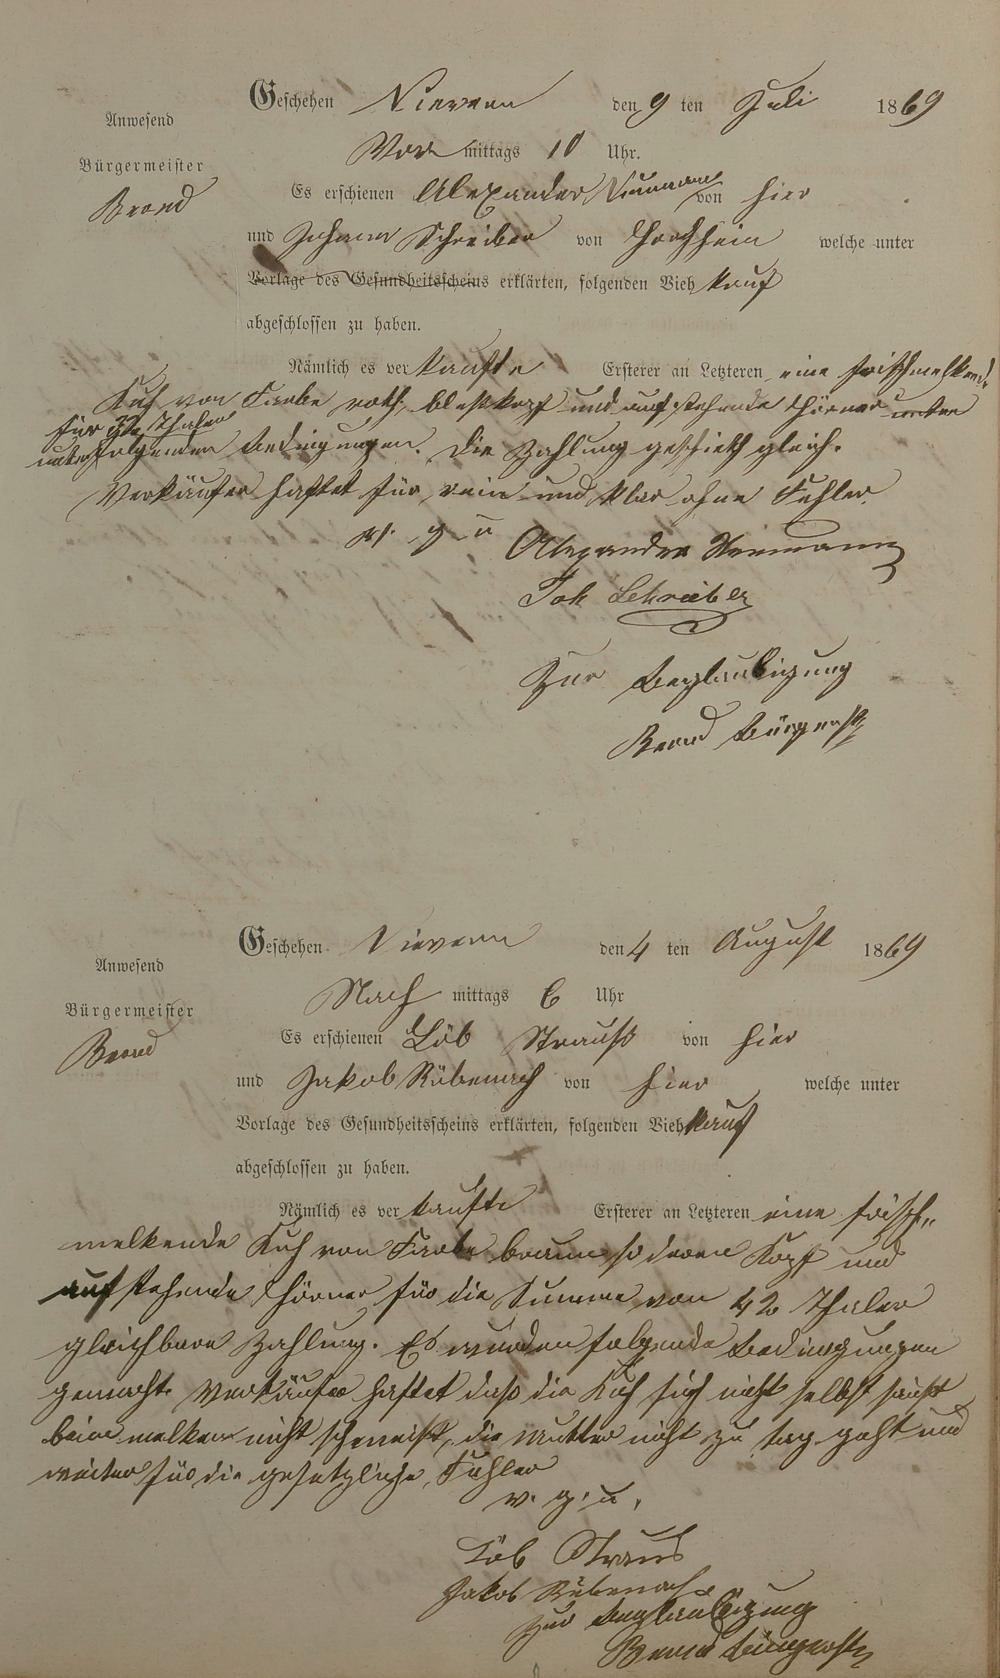 Geschehen Nievern den 9 ten Juli 1869
Anwesend
Vor mittags 10 Uhr.
Bürgermeister
Es erschienen Alexander Neumann von hier
Brand
und Johann Schreiber von Horchheim welche unter
Vorlage des Gesundheitsscheins erklärten, folgenden Vieh kauf
abgeschlossen zu haben.
Nämlich es ver kaufte Ersterer an Letzteren eine frischmelkende
Kuh von Farbe roth, bleskopf und aufstehende Hörner unter
für Thaler
unter folgenden Bedingungen. Die Zahlung geschieht gleich.
Verkäufer haftet für rein und klar ohne Fehler.
v. g. u
Alexander Neumann
Joh Schreiber
Zur Beglaubigung
Brand Bürgerstr
Geschehen Nievern den 4 ten August 1869
Anwesend
Nach mittags 6 Uhr
Bürgermeister
Es erschienen Löb Strauß von hier
Brand
und Jakob Rübenach von hier welche unter
Vorlage des Gesundheitsscheins erklärten, folgenden Vieh kauf
abgeschlossen zu haben.
Nämlich es ver kaufte Ersterer an Letzteren eine frisch-
melkende Kuh von Farbe braun, Kopf und
aufstehende Hörner für die Summe von 42 Thaler
gleichbare Zahlung. Es wurden folgende Bedingungen
gemacht. Verkäufer haftet daß die Kuh sich nicht selbst sauft
beim melken nicht schmeist, die Mutter nicht zu tag geht und
weiter für die gesetzliche Fehler
v. g. u.
Löb Straus
Jakob Rübenach
Zur Beglaubigung
Brand Bürgerstr